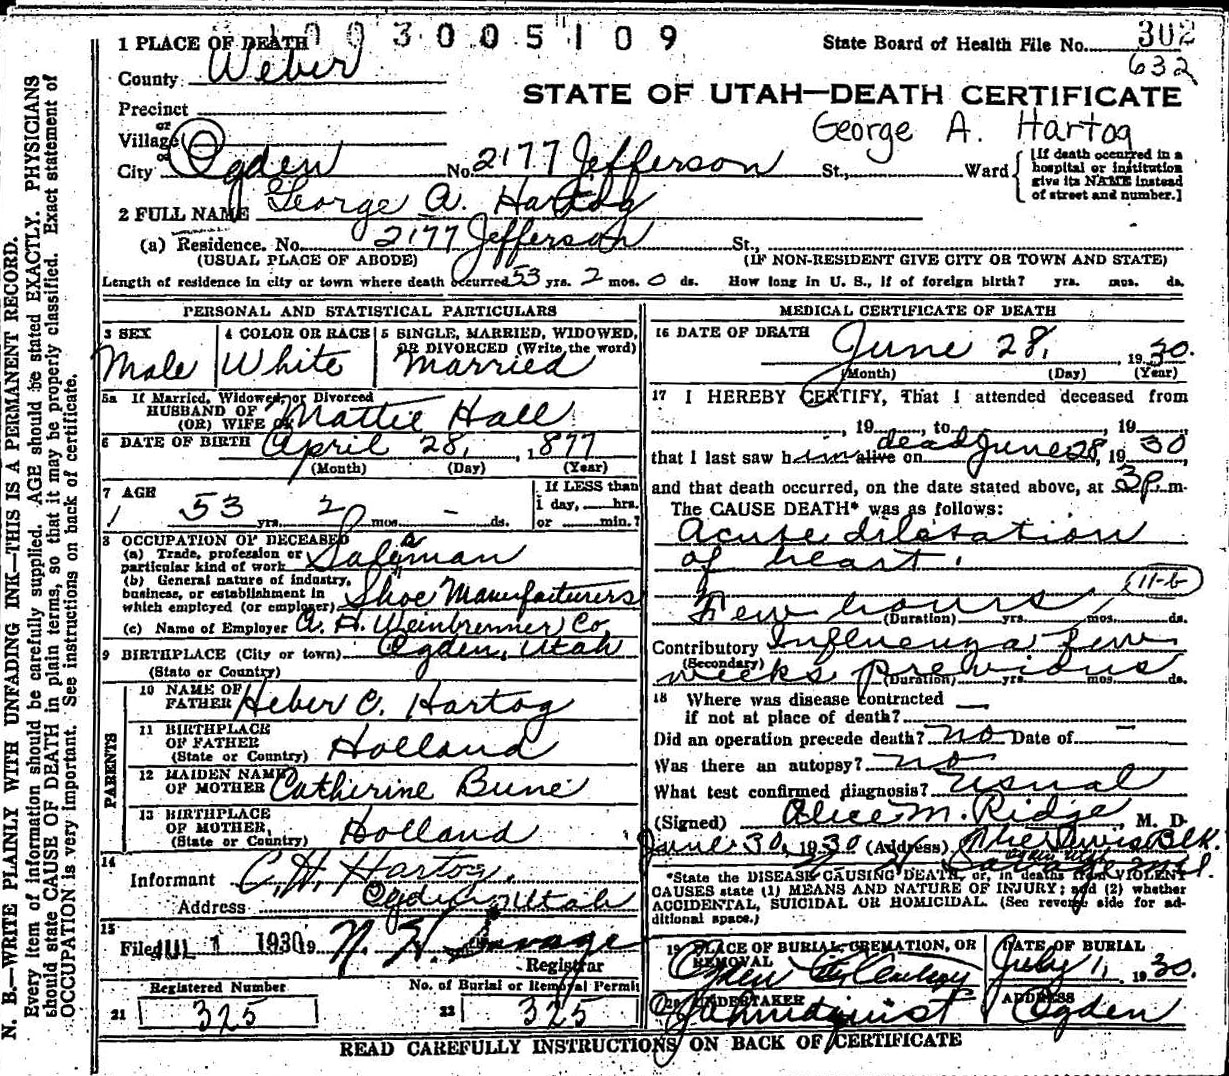 003005109
State Board of Health File No. 302
632
1 PLACE OF DEATH
County Weber
STATE OF UTAH—DEATH CERTIFICATE
George A. Hartog
Precinct
or
Village
or
City Ogden No. 2177 Jefferson St., Ward
[If death occurred in a hospital or institution give its NAME instead of street and number.]
2 FULL NAME George A. Hartog
(a) Residence. No. 2177 Jefferson St.,
(USUAL PLACE OF ABODE) (IF NON-RESIDENT GIVE CITY OR TOWN AND STATE)
Length of residence in city or town where death occurred 53 yrs. 2 mos. 0 ds. How long in U. S., if of foreign birth? yrs. mos. ds.
PERSONAL AND STATISTICAL PARTICULARS
3 SEX
Male
4 COLOR OR RACE
White
5 SINGLE, MARRIED, WIDOWED, OR DIVORCED (Write the word)
Married
5a If Married, Widowed, or Divorced
HUSBAND OF
(OR) WIFE OF Mattie Hall
6 DATE OF BIRTH April 28, 1877
(Month) (Day) (Year)
7 AGE
53 yrs. 2 mos. - ds.
If LESS than
1 day, hrs.
or min.?
8 OCCUPATION OF DECEASED
(a) Trade, profession or
particular kind of work Salesman
(b) General nature of industry,
business, or establishment in
which employed (or employer) Shoe Manufacturers
(c) Name of Employer A. H. Weinbrenner Co
9 BIRTHPLACE (City or town) Ogden, Utah
(State or Country)
PARENTS
10 NAME OF
FATHER Heber C. Hartog
11 BIRTHPLACE
OF FATHER
(State or Country) Holland
12 MAIDEN NAME
OF MOTHER Catherine Bune
13 BIRTHPLACE
OF MOTHER,
(State or Country) Holland
14
Informant C. H. Hartog.
Address Ogden, Utah
15
Filed JUL 1 1930 19 N. H. Savage
Registrar
Registered Number
21 325
No. of Burial or Removal Permit
22 325
MEDICAL CERTIFICATE OF DEATH
16 DATE OF DEATH June 28, 1930.
(Month) (Day) (Year)
17 I HEREBY CERTIFY, That I attended deceased from
, 19 , to , 19
that I last saw him alive on dead June 28, 1930
and that death occurred, on the date stated above, at 3 P. m.
The CAUSE DEATH* was as follows:
Acute dilatation
of heart.
11-b
Few hours,
(Duration) yrs. mos. ds.
Contributory Influenza few
(Secondary) weeks previous
(Duration) yrs. mos. ds.
18 Where was disease contracted
if not at place of death? —
Did an operation precede death? no Date of —
Was there an autopsy? no
What test confirmed diagnosis? usual
(Signed) Alice M. Ridge M. D.
June 30, 1930 (Address) Blk.
*State the DISEASE CAUSING DEATH, or, in deaths from VIOLENT
CAUSES state (1) MEANS AND NATURE OF INJURY; and (2) whether
ACCIDENTAL, SUICIDAL OR HOMICIDAL. (See reverse side for ad-
ditional space.)
19 PLACE OF BURIAL, CREMATION, OR
REMOVAL
Ogden City Cemetery
DATE OF BURIAL
July 1, 1930.
20 UNDERTAKER
Lindquist
ADDRESS
Ogden
READ CAREFULLY INSTRUCTIONS ON BACK OF CERTIFICATE
N. B.—WRITE PLAINLY WITH UNFADING INK—THIS IS A PERMANENT RECORD.
Every item of information should be carefully supplied. AGE should be stated EXACTLY. PHYSICIANS
should state CAUSE OF DEATH in plain terms, so that it may be properly classified. Exact statement of
OCCUPATION is very important. See instructions on back of certificate.